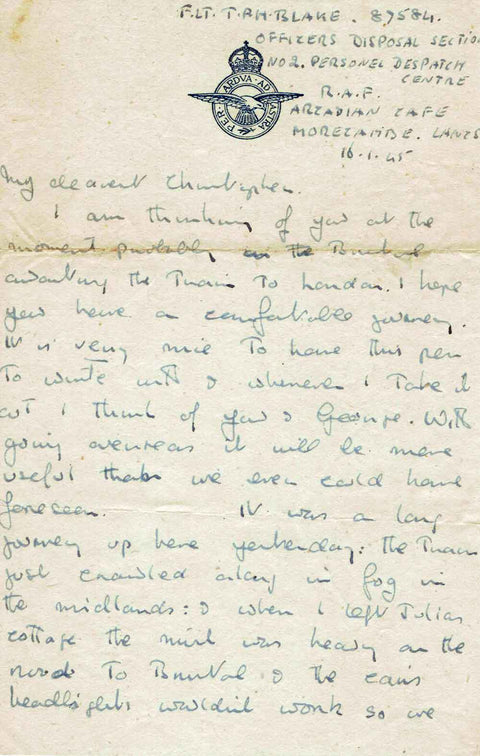 F.LT. T.P.H. BLAKE. 89584.
OFFICERS DISPOSAL SECTION
NO 2. PERSONEL DESPATCH
CENTRE
R.A.F.
ARCADIAN CAFE
MORECAMBE. LANCS
16.1.45
PER·ARDVA·AD·ASTRA
My dearest Christopher.
I am thinking of you at the
moment probably in the Bristol
awaiting the Train To London. I hope
you have a comfortable journey.
It is very nice To have this pen
To write with & whenever I Take it
out I think of you & George. With
going overseas it will be more
useful than we even could have
foreseen. It was a long
journey up here yesterday: the Train
just crawled along in fog in
the midlands: & when I left Julias
cottage the mist was heavy on the
road To Bristol & the cars
headlights wouldnt work so we